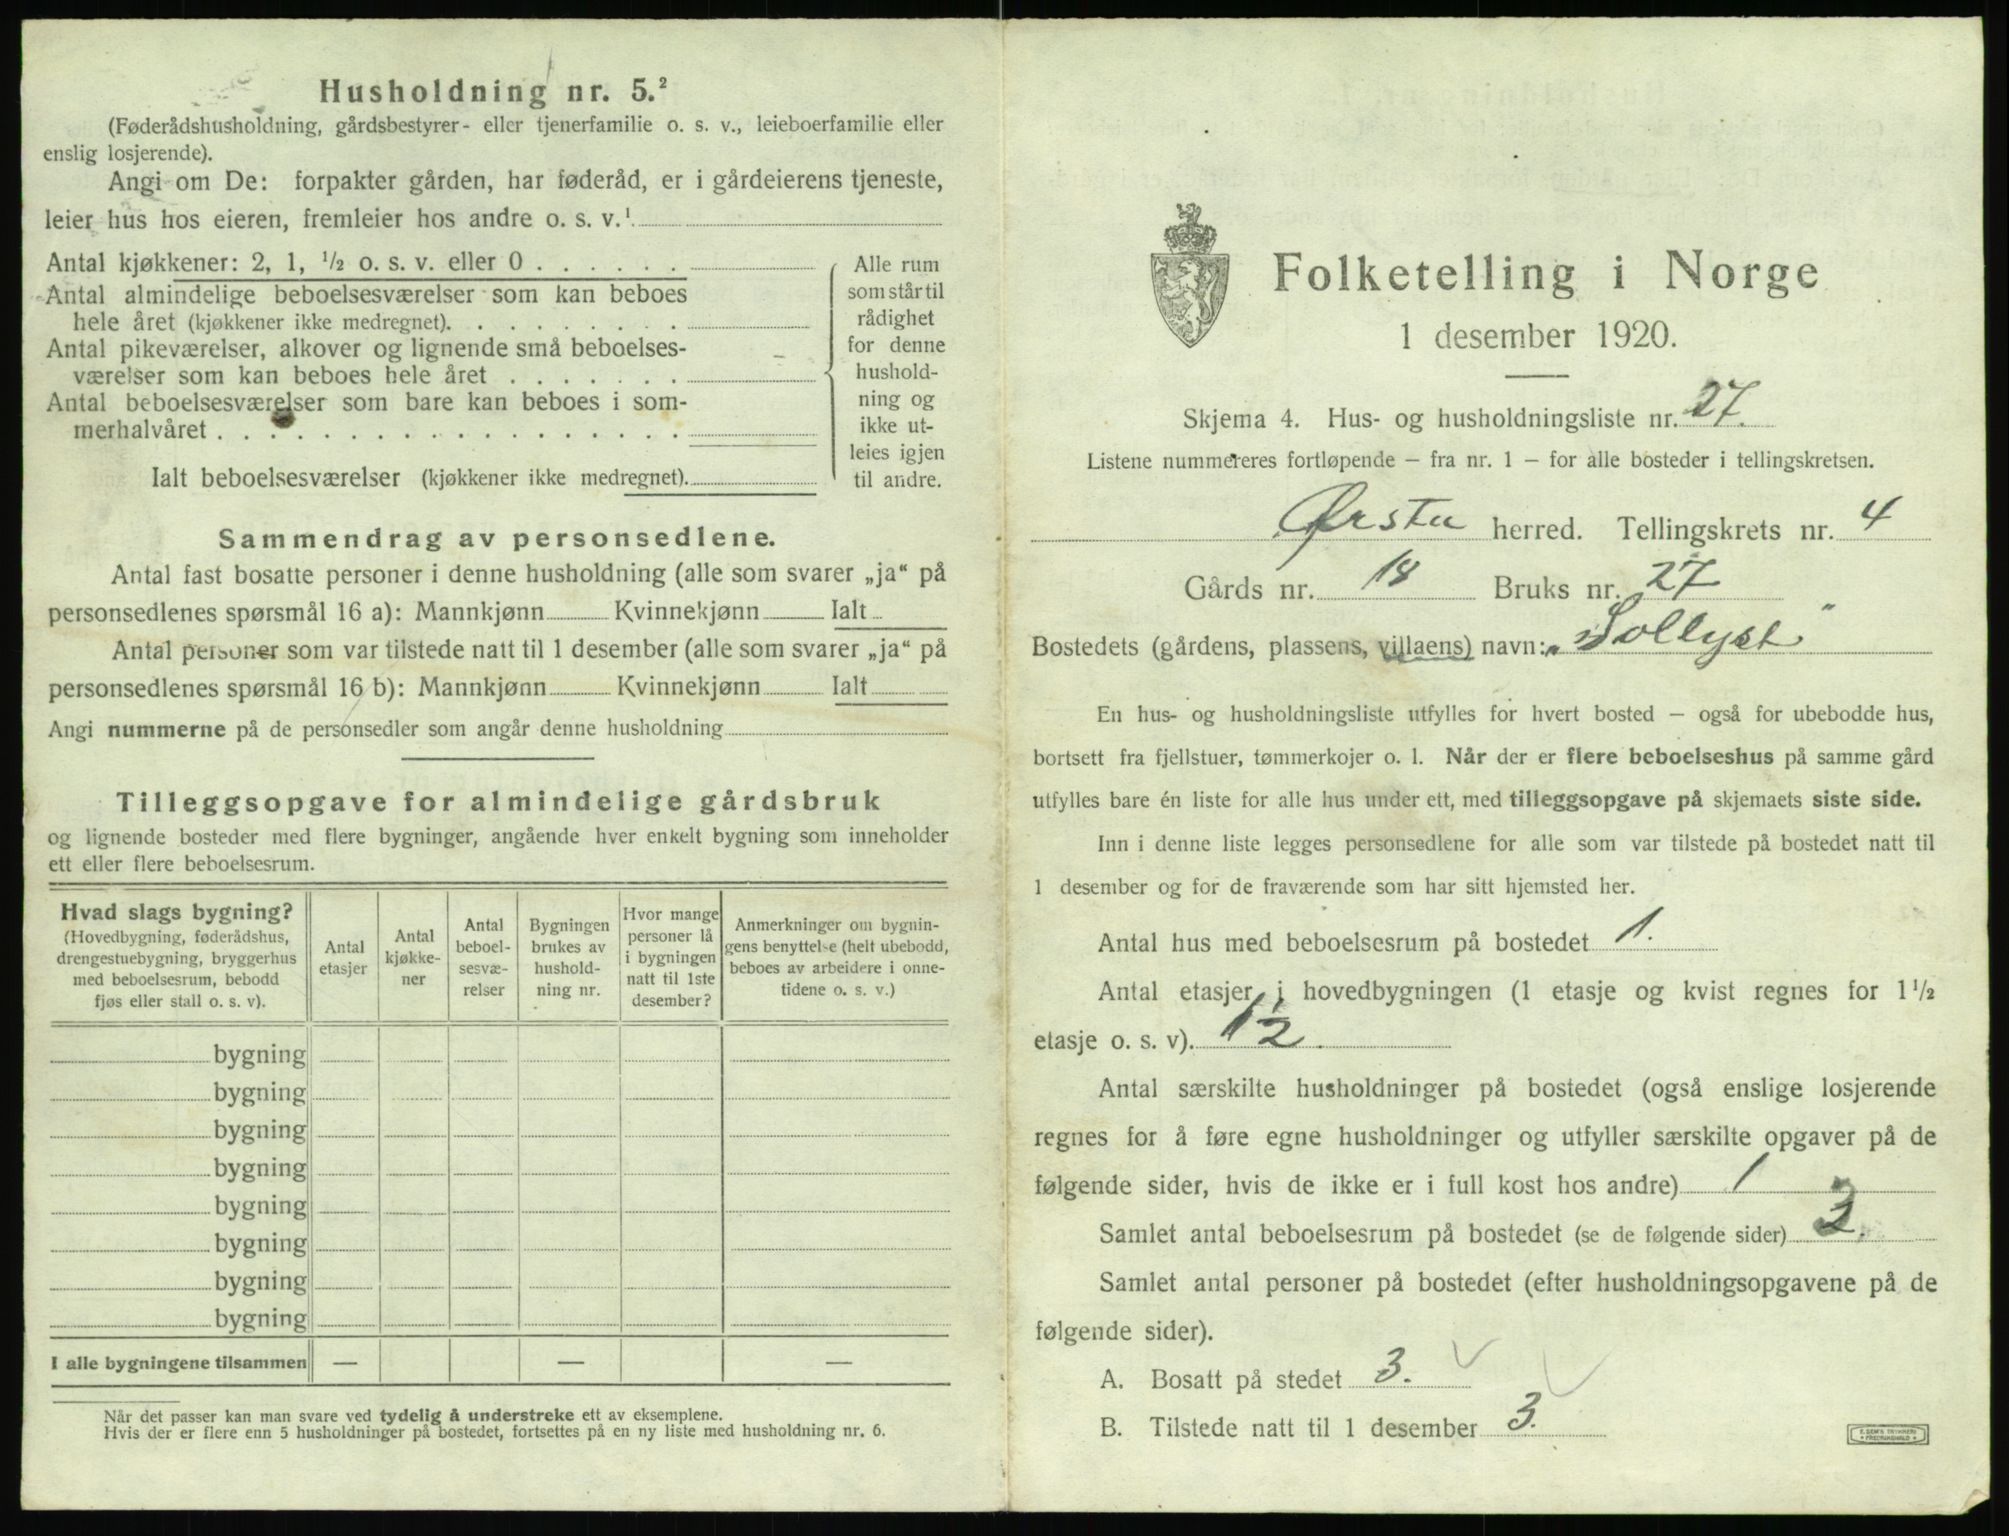 Husholdning nr. 5.²
(Føderådshusholdning, gårdsbestyrer- eller tjenerfamilie o. s. v., leieboerfamilie eller
enslig losjerende).
Angi om De: forpakter gården, har føderåd, er i gårdeierens tjeneste,
leier hus hos eieren, fremleier hos andre o. s. v.¹
Antal kjøkkener: 2, 1, ½ o. s. v. eller 0
Antal almindelige beboelsesværelser som kan beboes
hele året (kjøkkener ikke medregnet).
Antal pikeværelser, alkover og lignende små beboelses-
værelser som kan beboes hele året
Antal beboelsesværelser som bare kan beboes i som-
merhalvåret
Ialt beboelsesværelser (kjøkkener ikke medregnet).
Alle rum
som står til
rådighet
for denne
hushold-
ning og
ikke ut-
leies igjen
til andre.
Sammendrag av personsedlene.
Antal fast bosatte personer i denne husholdning (alle som svarer „ja“ på
personsedlenes spørsmål 16 a): Mannkjønn Kvinnekjønn Ialt
Antal personer som var tilstede natt til 1 desember (alle som svarer „ja“ på
personsedlenes spørsmål 16 b): Mannkjønn Kvinnekjønn Ialt
Angi nummerne på de personsedler som angår denne husholdning
Tilleggsopgave for almindelige gårdsbruk
og lignende bosteder med flere bygninger, angående hver enkelt bygning som inneholder
ett eller flere beboelsesrum.
Hvad slags bygning?
(Hovedbygning, føderådshus,
drengestuebygning, bryggerhus
med beboelsesrum, bebodd
fjøs eller stall o. s. v).
Antal
etasjer
Antal
kjøkke-
ner
Antal
beboel-
sesvæ-
relser
Bygningen
brukes av
hushold-
ning nr.
Hvor mange
personer lå
i bygningen
natt til 1ste
desember?
Anmerkninger om bygnin-
gens benyttelse (helt ubebodd,
beboes av arbeidere i onne-
tidene o. s. v.)
bygning
bygning
bygning
bygning
bygning
bygning
bygning
bygning
I alle bygningene tilsammen — — —
Når det passer kan man svare ved tydelig å understreke ett av eksemplene.
Hvis der er flere enn 5 husholdninger på bostedet, fortsettes på en ny liste med husholdning nr. 6.
Folketelling i Norge
1 desember 1920.
Skjema 4. Hus- og husholdningsliste nr. 27.
Listene nummereres fortløpende – fra nr. 1 – for alle bosteder i tellingskretsen.
Ørsta herred. Tellingskrets nr. 4
Gårds nr. 18 Bruks nr. 27
Bostedets (gårdens, plassens, villaens) navn: „Sollyst"
En hus- og husholdningsliste utfylles for hvert bosted – også for ubebodde hus,
bortsett fra fjellstuer, tømmerkojer o. l. Når der er flere beboelseshus på samme gård
utfylles bare én liste for alle hus under ett, med tilleggsopgave på skjemaets siste side.
Inn i denne liste legges personsedlene for alle som var tilstede på bostedet natt til
1 desember og for de fraværende som har sitt hjemsted her.
Antal hus med beboelsesrum på bostedet 1.
Antal etasjer i hovedbygningen (1 etasje og kvist regnes for 1½
etasje o. s. v). 1½.
Antal særskilte husholdninger på bostedet (også enslige losjerende
regnes for å føre egne husholdninger og utfyller særskilte opgaver på de
følgende sider, hvis de ikke er i full kost hos andre) 1
Samlet antal beboelsesrum på bostedet (se de følgende sider) 3.
Samlet antal personer på bostedet (efter husholdningsopgavene på de
følgende sider).
A. Bosatt på stedet 3.
B. Tilstede natt til 1 desember 3.